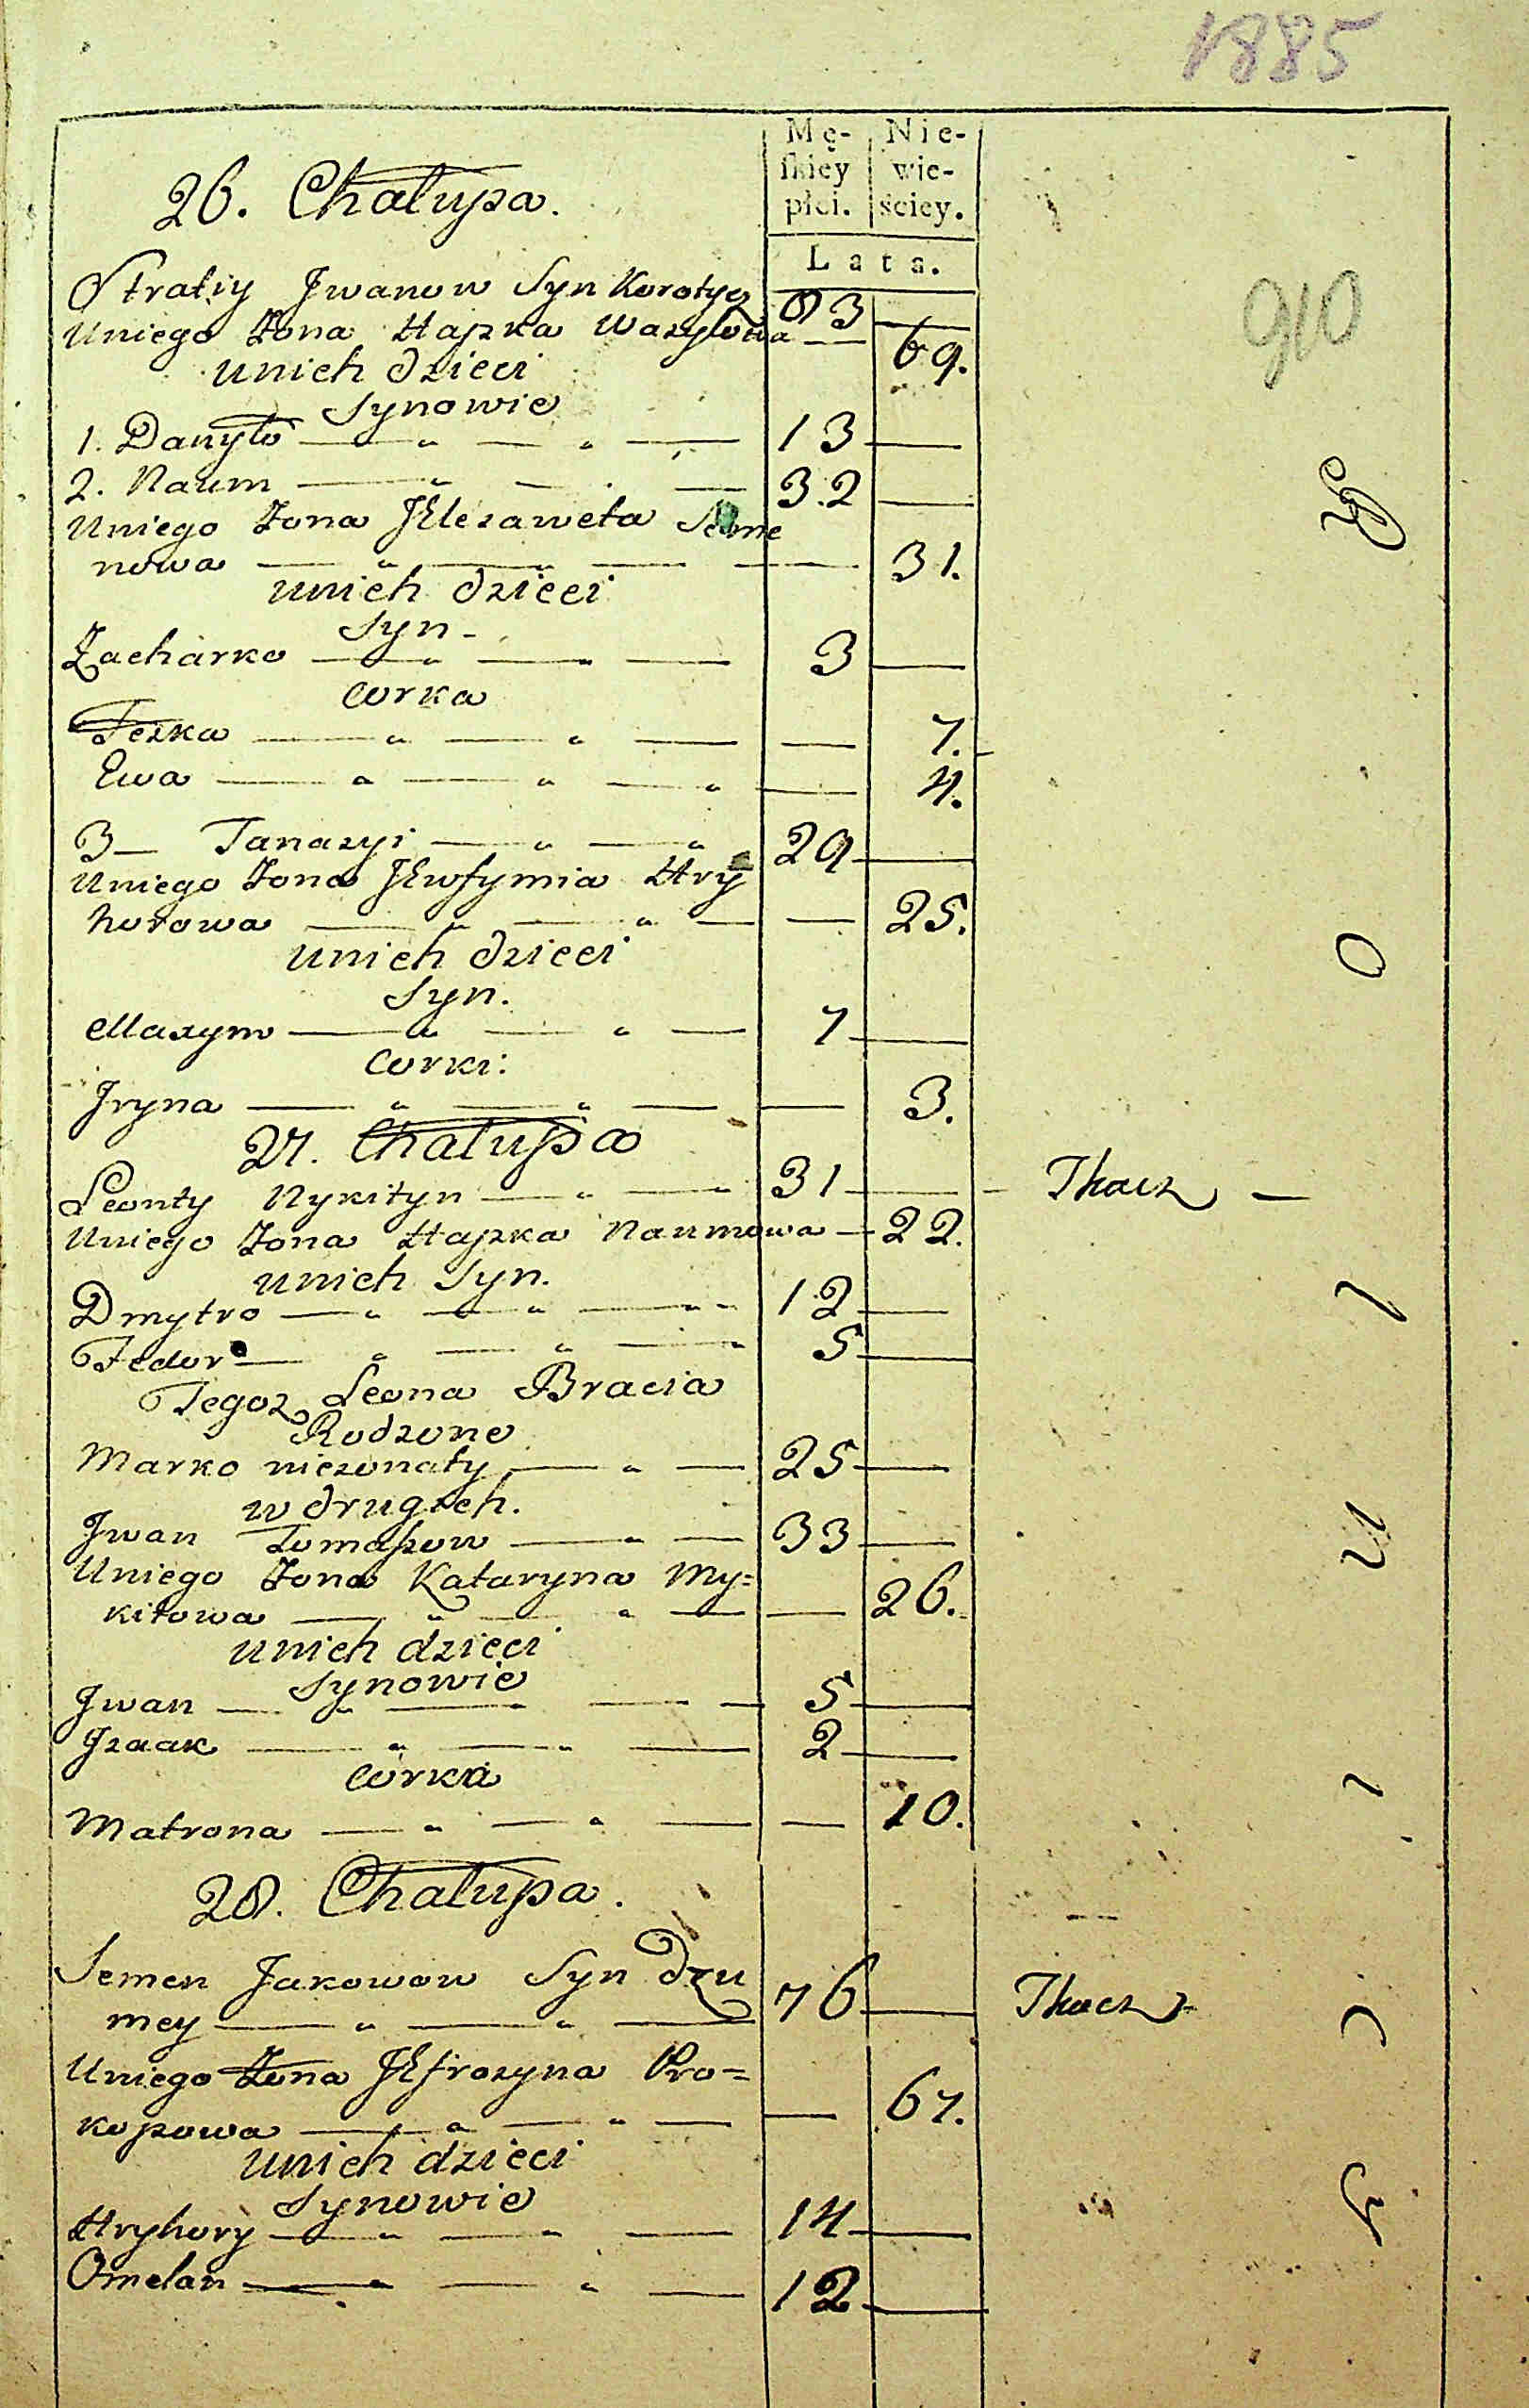 1885
Mę- Nie-
skiey wie-
płci. ściey.
Lata.
26. Chałupa.
910
Stratiy Jwanow Syn Korotycz 83
Uniego Żona Hapka Wasylowa 69.
unich dzieci
Synowie
1. Danyło 13
2. Naum 32
Uniego Żona JElezaweta Seme
nowa 31.
unich dzieci
Syn
Zacharko 3
corka
Feska 7.
Ewa 4.
3 Tanasyi 29
Uniego Żona JEwfymia Hry
horowa 25.
unich dzieci
Syn.
Maxym 7
Corki:
Jryna 3.
27. Chałupa
Leonty Nykityn 31 Tkacz
Uniego Żona Hapka Naumowa 22.
unich Syn.
Dmytro 12
Fedor 5
Tegoz Leona Bracia
Rodzone
Marko niezonaty 25
w drugich.
Jwan Tomaszow 33
Uniego Żona Kataryna My=
kitowa 26.
unich dzieci
Synowie
Jwan 5
Jzaak 2
corka
Matrona 10.
28. Chałupa.
Semen Jakowow Syn Dzu
mey 76 Tkacz
Uniego Żona JEfrozyna Pro=
kopowa 67.
unich dzieci
Synowie
Hryhory 14
Omelan 12